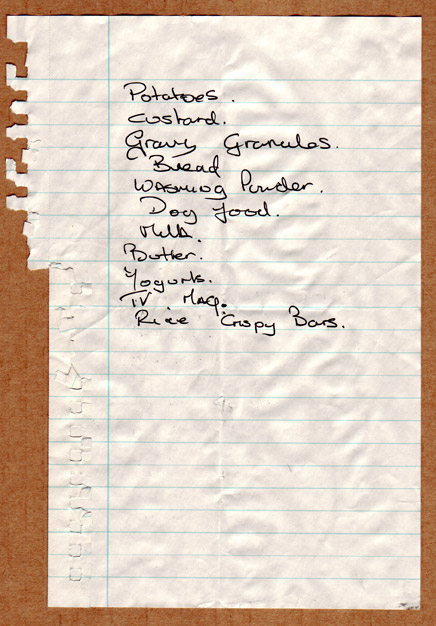 Potatoes.
Custard.
Gravy Granules.
Bread
Washing Powder.
Dog food.
Milk.
Butter.
Yogurts.
TV Mag.
Rice Crispy Bars.